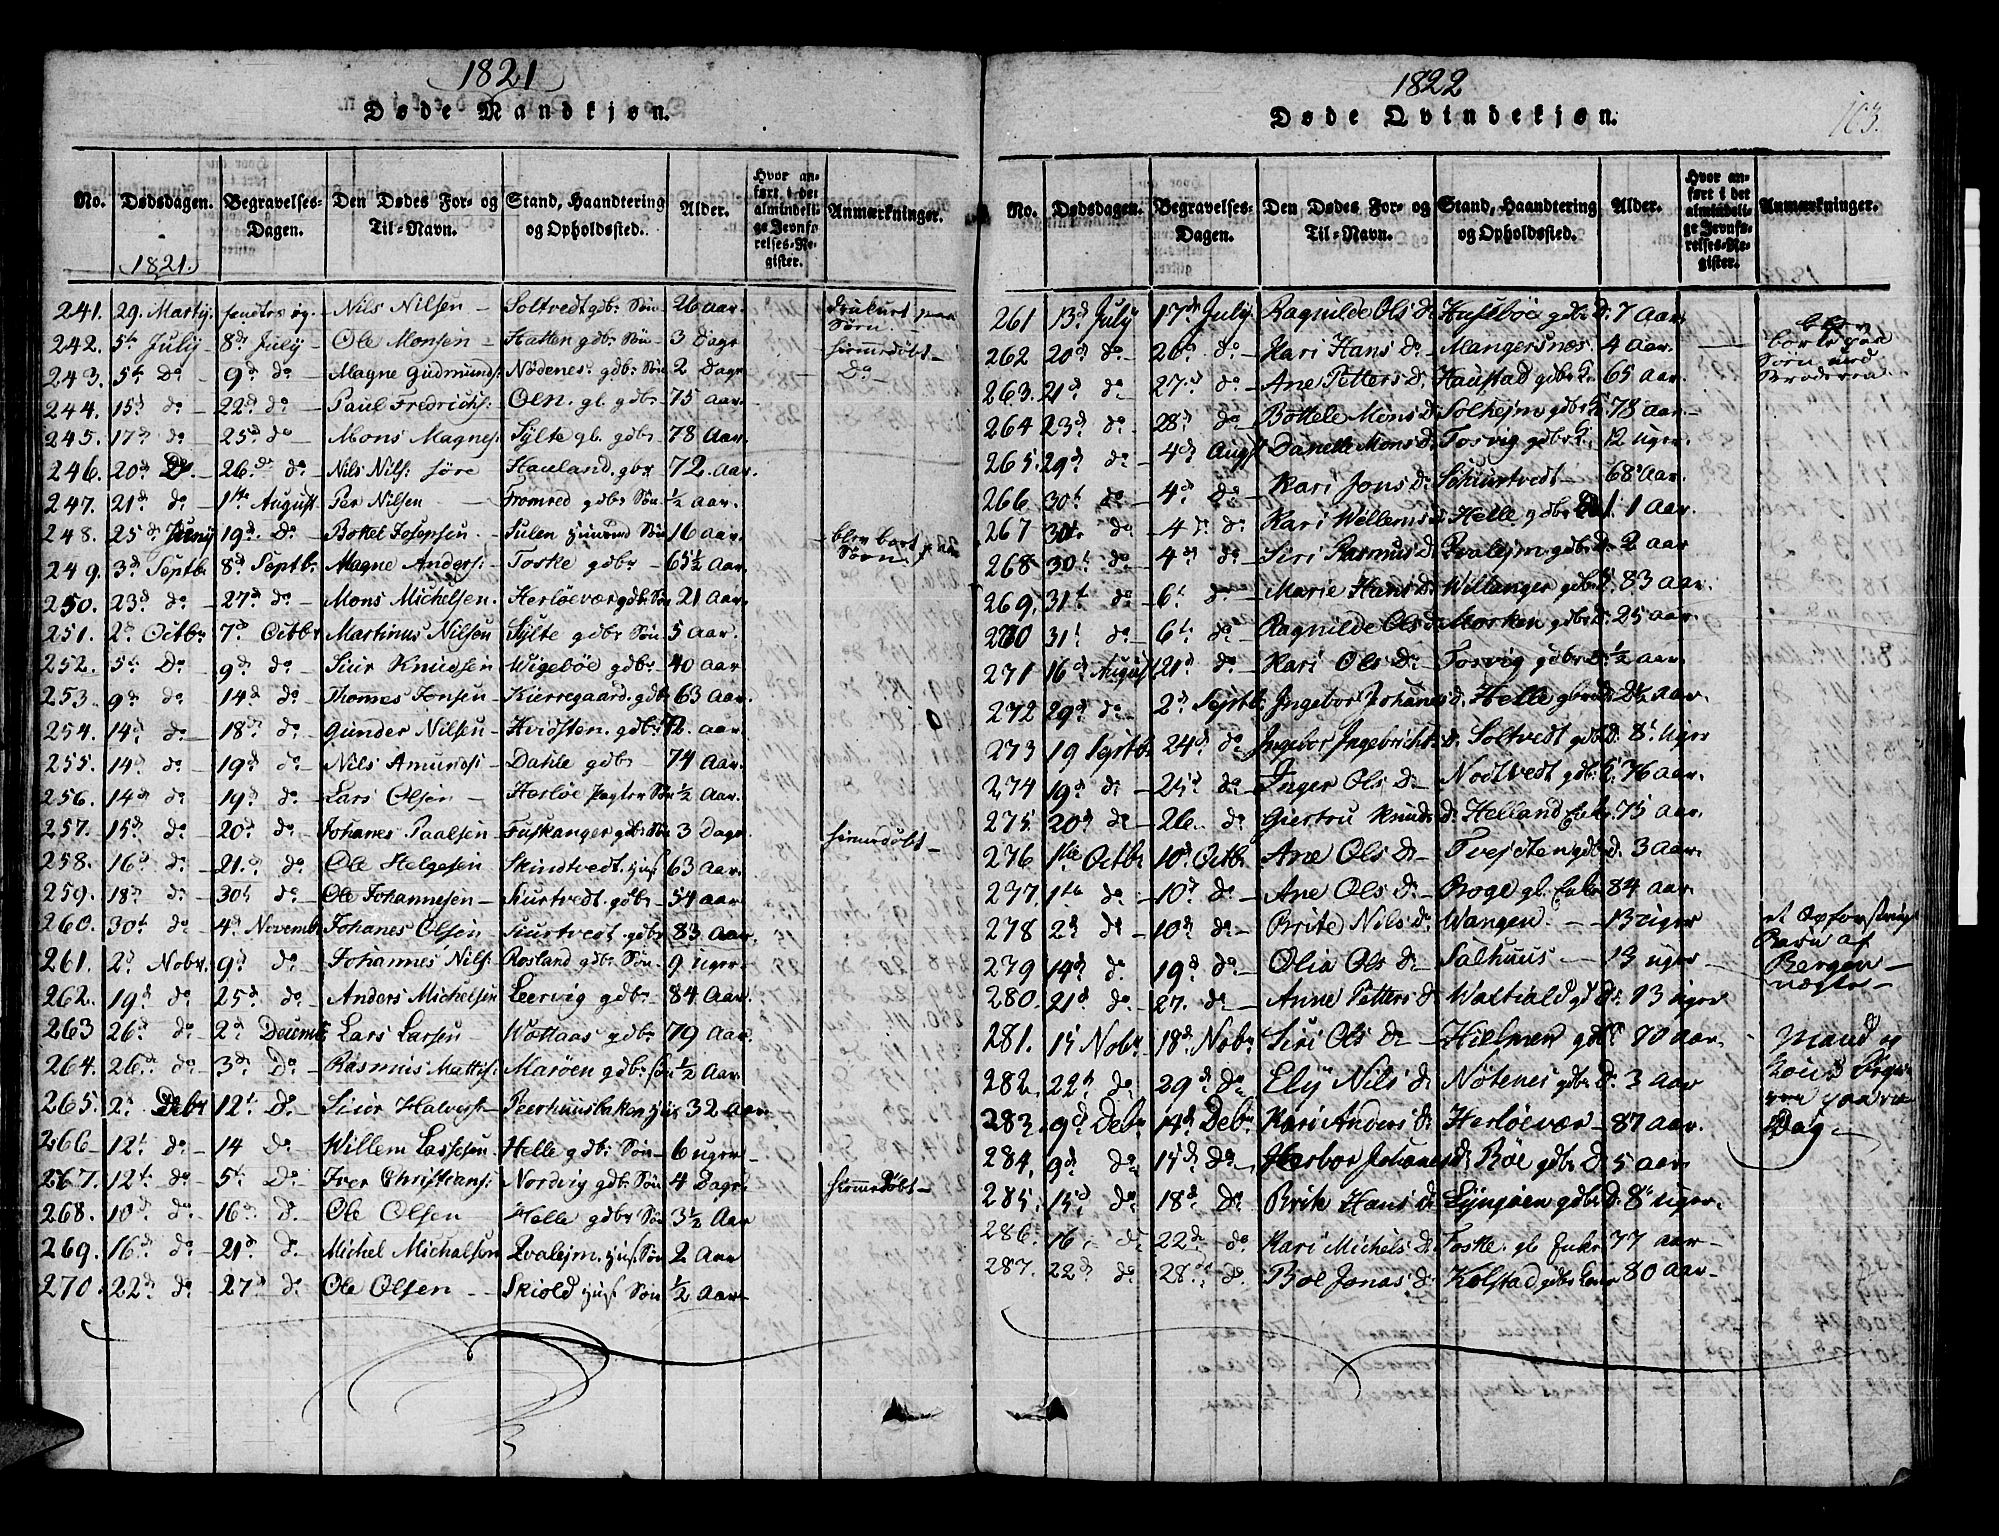 1821
Døde Mandkjøn.
No. Dødsdagen. Begravelses-Dagen. Den Dødes For- og Til-Navn. Stand, Haandtering og Opholdssted. Alder. Hvor anført i det almindelige Jevnførelses-Register. Anmærkninger.
1821.
241. 29. Martij Nils Nilsen - Soltvedt gdbr Søn 26 aar.
242. 5te July - 8d July - Ole Monsen - Hatten gdbr Søn - 3 Dage hiemedøbt -
243. 5te Do - 9d do - Magne Gudmunds: Nødenes. gdbr Søn 2 Dage Do -
244. 15d do - 22d do - Paul Fredrichs: Oln. gl. gdbr - 75 aar.
245. 17d do - 25d do - Mons Magnes: Sylte gl. gdbr 78 Aar.
246. 20d Do. 26. do Nils Nils: søre Hauland. gbr 72. Aar.
247. 21d do - 1ste August. Per Nilsen - Fromred gdbr Søn ½ aar.
248. 25d Juny 19d Do. Bottel Josepsen. Sulen Søn 16 aar. blev bort paa Søen
249. 3d Septbr. 8d Septbr. Magne Anders: Toske gdbr - 65½ Aar.
250. 23d do - 27d do - Mons Michelsen. Herløevær gdbr Søn 21 Aar.
251. 2d Octbr 7d Octbr Martinus Nilsen Sylte gdbr Søn 5 Aar.
252. 5te Do - 9d do - Siur Knudsen Wigebøe gdbr 40 Aar.
253. 9d do - 14d do - Thomes Jonsen - Kierregaard. gdbr 63 Aar.
254. 14d do - 18d do - Gunder Nilsen - Hvidsten. gdbr. aar.
255. 14d do - 19d do - Nils Amunds: Dahle gdbr - 74 Aar.
256. 14d do - 19d do - Lars Olsen - Herløe Søn ½ Aar.
257. 15d do - 20d do - Johanes Paalsen Fuskanger gdbr Søn 3 Dage hiemedøbt -
258. 16d do - 21. do - Ole Helgesen Skindtvedt. huus 63 Aar.
259. 18d do - 30d do - Ole Johannesen - Siurtvedt. gdbr - 54 aar
260. 30d do - 4d Novemb. Johanes Olsen Siurtvedt gdbr 83 aar.
261. 2d Nobr. 9d do - Johannes Nils: Rosland gdbr Søn 9 uger.
262. 19d do - 25d do - Anders Michelsen Leervig gdbr - 84 Aar.
263 26d do - 2d Decemb. Lars Larsen Wottaas gdbr 79 Aar.
264. 26. do - 3d Do - Rasmus Matts: Marøen gdbr Søn ½ Aar.
265. 2d Debr 12t Do - Siur Halvors: - 32 aar.
266 - 12t do - 14 Do Willem Lassesen Helle gdbr Søn - 6 uger -
267. 12t do - 5t Do - Iver Christians: Nordvig gdbr Søn 4 Dage hiemedøbt -
268. 10d do - 16d d. Ole Olsen Helle gdbr Søn 3½ Aar
269. 16d do - 21d d. Michel Michalsen Qvalejm. huus Søn 2 Aar
270. 22d do - 27d d. Ole Olsen - Skiold huus Søn ½ Aar -
1822
103.
Døde Qvindekjøn.
No. Dødsdagen. Begravelses-Dagen. Den Dødes For- og Til-Navn. Stand, Haandtering og Opholdssted. Alder. Hvor anført i det almindelige Jevnførelses-Register. Anmærkninger.
261 13d July 17d July. Ragnilde Ols d. Huselbøe gdbr d. 7 Aar.
262 20d do - 26d do - Kari Hans d. Mangersnæs. 4 Aar. blev borte paa Søen med Broderen -
263. 21d do - 27d do - Ane Petters d. Haustad gdbr 65 aar.
264 23d do - 28d do - Bottele Mons d. Solhejm gdbr 78 aar -
265. 29d do - 4d Augst Danelle Mons d. Tosvig gdbr 12 uger.
266 30t do - 4d do - Kari Jons d. Siurtvedt - 68 Aar.
267 30t do 4d do - Kari Willems d. Helle gdbr 1 aar
268 30t do 4d do - Siri Rasmus d. Qvalejm. gdbr d. 2 aar
269. 31t do - 6t do - Marie Hans d. Willanger gdbr 83 aar.
270 31t do 6t do - Ragnilde Ols d. Morken gdbr d. 25 aar.
271 16d August 21d do - Kari Ols d. Tosvig gdbr d. ½ aar.
272 29d do - 2d Septbr. Ingebor Johanes d. Helle gbr d. 2½ aar.
273 19 Septbr. 24d do Ingebor Ingebricht d. Soltvedt gdbr d. 8t uger
274 19d do - 25d do - Inger Ols d. Nodtvedt gdbr 76 aar.
275. 20d do - 26. do - Giertru Knuds d. Helland Enke 75 aar.
276 1ste Octbr 10d Octbr Ane Ols d. - Tvejten gdbr d. 3 aar.
277. 1ste do - 10d do - Ane Ols d. Boge gl. Enke 84 aar
278 2d do - 10d do - Brite Nils d. Wangen. - 13 uger et Opfostrings
279 14d do 19d do - Olia Ols d. Salhuus - 13 uger - Barn af Bergen -
280. 21d do 27. do - Anne Petters d. d. 13 uger
281. 15 Nobr 18d Nobr Siri Ols d. Hielmen gdbr 70 aar. Mand og
282. 22d do - 29d do - Ely Nils d. Nøtenes gdbr d. 3 aar
283. 9d Debr 14d Debr Kari Anders d. Herløevær - 87 aar. Dag.
284. 9d do 15d do - Herbor Johanes d. Bøe gdbr d. 5 aar
285. 15d do - 18d Do. Brite Hans d. Lyngøen gdbr d. 8te uger.
286. 16. d. 22d do. Kari Michels d. Toske. gl Enke 77 aar -
287. 22d do. 28d do. Boe Jonas d. Kolstad gdbr 80 Aar -